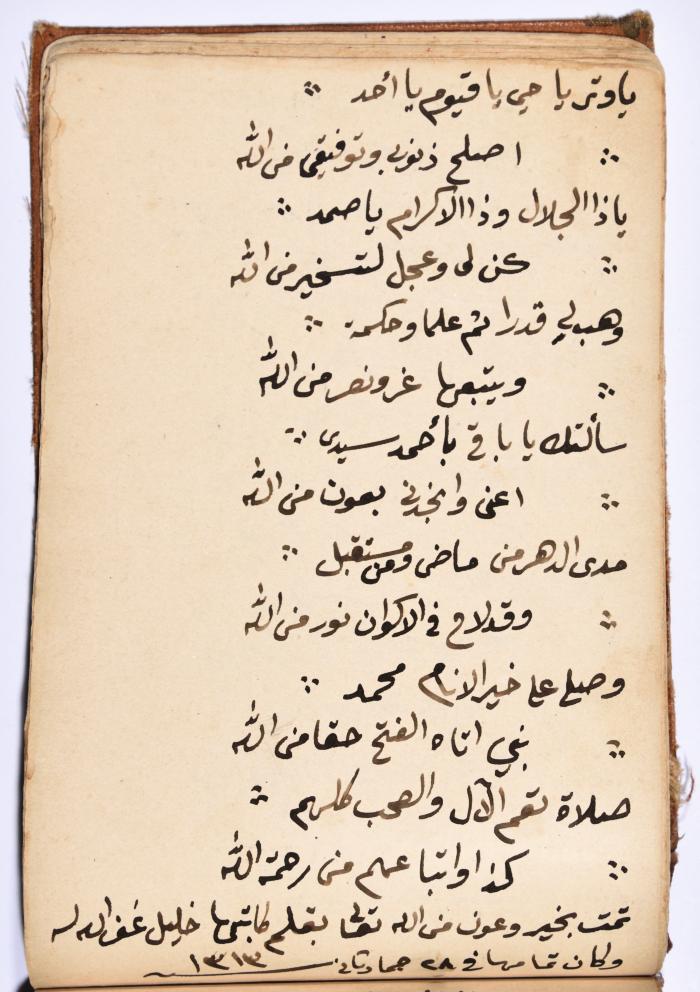 يا وتر يا حي يا قيوم يا أحد
اصلح ذنوبي وتوفيقي من الله
يا ذا الجلال وذا الاكرام يا صمد
كن لي وعجل لتسخير من الله
وهب لي قدرا ثم علما وحكمة
ويتبعها عز ونصر من الله
سألتك يا باقي بأحمد سيدي
اعني وانجدني بعون من الله
مدى الدهر من ماضي ومن مستقبل
وقد لاح في الاكوان نور من الله
وصلي على خير الانام محمد
نبي اتاه الفتح حقا من الله
صلاة تعم الآل والصحب كلهم
كذا واتباعهم من رحمة الله
تمت بخير وعون من الله تعالى بقلم كاتبها خليل غفر الله له
وكان تمامها في ٢٨ جماد ثاني ١٣١٣